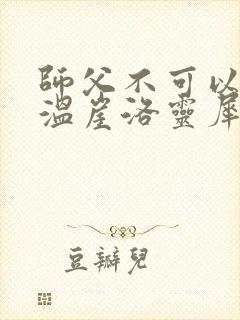 師父不可以
溫崖洛靈犀
豆瓣兒